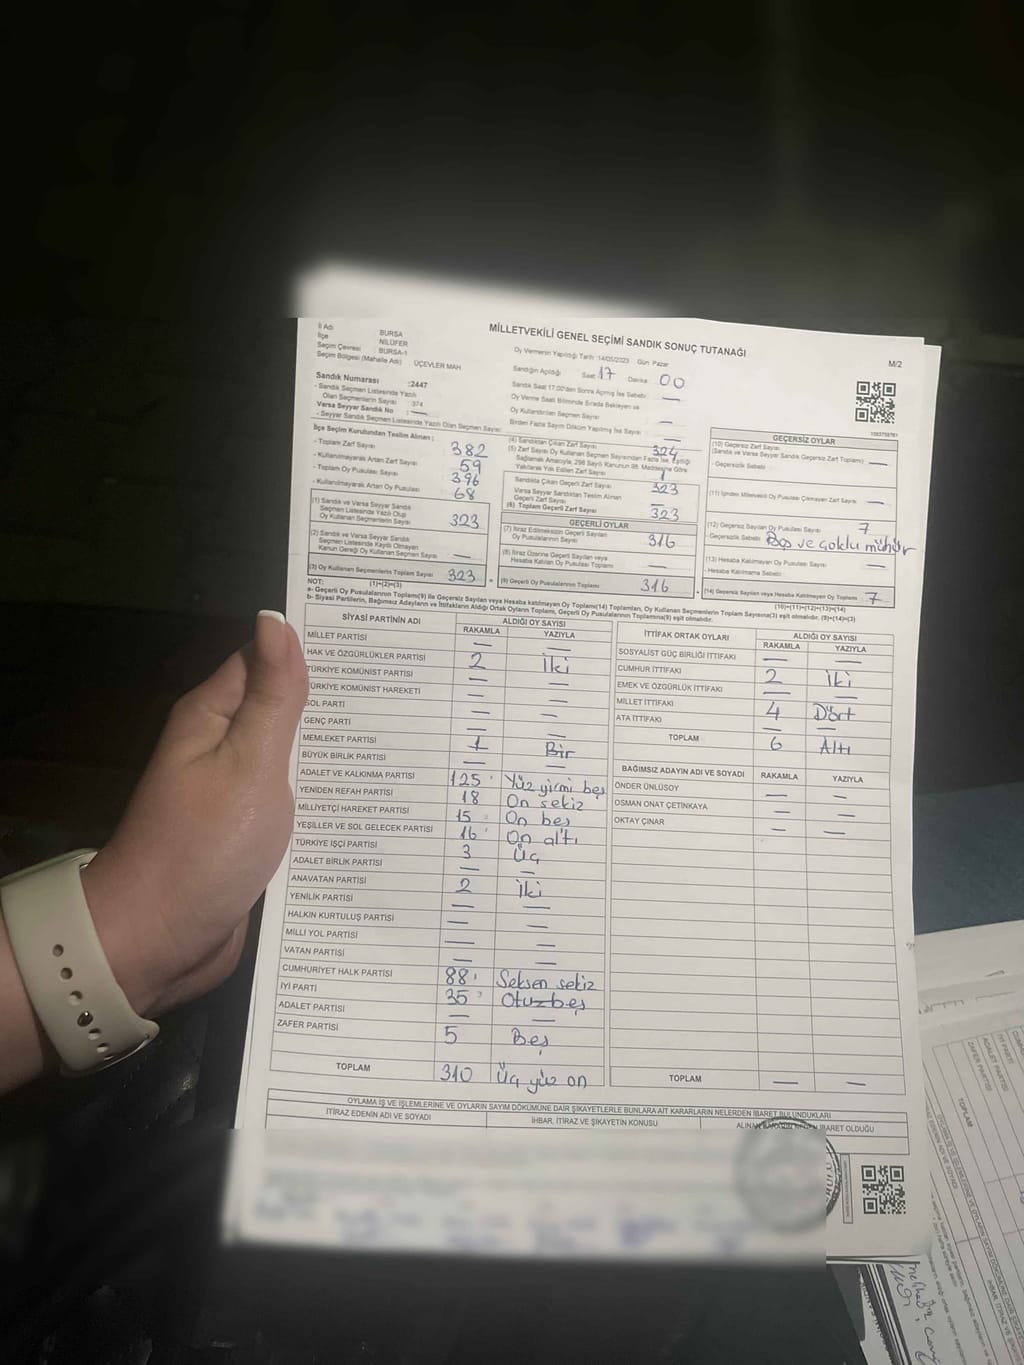 MİLLETVEKİLİ GENEL SEÇİMİ SANDIK SONUÇ TUTANAĞI
M/2
İl Adı BURSA
İlçe NİLÜFER
Seçim Çevresi BURSA-1
Seçim Bölgesi (Mahalle Adı) : ÜÇEVLER MAH
Sandık Numarası :2447
- Sandık Seçmen Listesinde Yazılı
Olan Seçmenlerin Sayısı : 374
Varsa Seyyar Sandık No : —
- Seyyar Sandık Seçmen Listesinde Yazılı Olan Seçmen Sayısı:
Oy Vermenin Yapıldığı Tarih :14/05/2023 Gün Pazar
Sandığın Açıldığı Saat 17 Dakika 00
Sandık Saat 17:00'den Sonra Açılmış İse Sebebi —
Oy Verme Saati Bitiminde Sırada Bekleyen ve
Oy Kullandırılan Seçmen Sayısı —
Birden Fazla Sayım Döküm Yapılmış İse Sayısı —
İlçe Seçim Kurulundan Teslim Alınan ;
- Toplam Zarf Sayısı 382
- Kullanılmayarak Artan Zarf Sayısı 59
- Toplam Oy Pusulası Sayısı 396
- Kullanılmayarak Artan Oy Pusulası 68
(1) Sandık ve Varsa Seyyar Sandık
Seçmen Listesinde Yazılı Olup
Oy Kullanan Seçmenlerin Sayısı 323
(2) Sandık ve Varsa Seyyar Sandık
Seçmen Listesinde Kayıtlı Olmayan
Kanun Gereği Oy Kullanan Seçmen Sayısı —
(3) Oy Kullanan Seçmenlerin Toplam Sayısı 323
(1)+(2)=(3)
(4) Sandıktan Çıkan Zarf Sayısı 324
(5) Zarf Sayısı Oy Kullanan Seçmen Sayısından Fazla İse, Eşitliği
Sağlamak Amacıyla, 298 Sayılı Kanunun 98. Maddesine Göre
Yakılarak Yok Edilen Zarf Sayısı 1
Sandıkta Çıkan Geçerli Zarf Sayısı 323
Varsa Seyyar Sandıktan Teslim Alınan
Geçerli Zarf Sayısı —
(6) Toplam Geçerli Zarf Sayısı 323
GEÇERLİ OYLAR
(7) İtiraz Edilmeksizin Geçerli Sayılan
Oy Pusulalarının Sayısı 316
(8) İtiraz Üzerine Geçerli Sayılan veya
Hesaba Katılan Oy Pusulası Toplamı —
(9) Geçerli Oy Pusulalarının Toplamı 316
GEÇERSİZ OYLAR
(10) Geçersiz Zarf Sayısı
(Sandık ve Varsa Seyyar Sandık Geçersiz Zarf Toplamı) —
- Geçersizlik Sebebi
(11) İçinden Milletvekili Oy Pusulası Çıkmayan Zarf Sayısı —
(12) Geçersiz Sayılan Oy Pusulası Sayısı 7
- Geçersizlik Sebebi Boş ve çoklu mühür
(13) Hesaba Katılmayan Oy Pusulası Sayısı —
- Hesaba Katılmama Sebebi
(14) Geçersiz Sayılan veya Hesaba Katılmayan Oy Toplamı 7
(10)+(11)+(12)+(13)=(14)
NOT:
a- Geçerli Oy Pusulalarının Toplamı(9) ile Geçersiz Sayılan veya Hesaba katılmayan Oy Toplamı(14) Toplamları, Oy Kullanan Seçmenlerin Toplam Sayısına(3) eşit olmalıdır. (9)+(14)=(3)
b- Siyasi Partilerin, Bağımsız Adayların ve İttifakların Aldığı Ortak Oyların Toplamı, Geçerli Oy Pusulalarının Toplamına(9) eşit olmalıdır.
SİYASİ PARTİNİN ADI ALDIĞI OY SAYISI
RAKAMLA YAZIYLA
MİLLET PARTİSİ — —
HAK VE ÖZGÜRLÜKLER PARTİSİ 2 İki
TÜRKİYE KOMÜNİST PARTİSİ — —
TÜRKİYE KOMÜNİST HAREKETİ — —
SOL PARTİ — —
GENÇ PARTİ — —
MEMLEKET PARTİSİ 1 Bir
BÜYÜK BİRLİK PARTİSİ — —
ADALET VE KALKINMA PARTİSİ 125 Yüz yirmi beş
YENİDEN REFAH PARTİSİ 18 On sekiz
MİLLİYETÇİ HAREKET PARTİSİ 15 On beş
YEŞİLLER VE SOL GELECEK PARTİSİ 16 On altı
TÜRKİYE İŞÇİ PARTİSİ 3 Üç
ADALET BİRLİK PARTİSİ — —
ANAVATAN PARTİSİ 2 İki
YENİLİK PARTİSİ — —
HALKIN KURTULUŞ PARTİSİ — —
MİLLİ YOL PARTİSİ — —
VATAN PARTİSİ — —
CUMHURİYET HALK PARTİSİ 88 Seksen sekiz
İYİ PARTİ 35 Otuz beş
ADALET PARTİSİ — —
ZAFER PARTİSİ 5 Beş
TOPLAM 310 Üç yüz on
İTTİFAK ORTAK OYLARI ALDIĞI OY SAYISI
RAKAMLA YAZIYLA
SOSYALİST GÜÇ BİRLİĞİ İTTİFAKI — —
CUMHUR İTTİFAKI 2 İki
EMEK VE ÖZGÜRLÜK İTTİFAKI — —
MİLLET İTTİFAKI 4 Dört
ATA İTTİFAKI — —
TOPLAM 6 Altı
BAĞIMSIZ ADAYIN ADI VE SOYADI RAKAMLA YAZIYLA
ÖNDER ÜNLÜSOY — —
OSMAN ONAT ÇETİNKAYA — —
OKTAY ÇINAR — —
TOPLAM — —
OYLAMA İŞ VE İŞLEMLERİNE VE OYLARIN SAYIM DÖKÜMÜNE DAİR ŞİKAYETLERLE BUNLARA AİT KARARLARIN NELERDEN İBARET BULUNDUKLARI
İTİRAZ EDENİN ADI VE SOYADI İHBAR, İTİRAZ VE ŞİKAYETİN KONUSU ALINAN KARARIN NEDEN İBARET OLDUĞU
ADALET PARTİSİ
ZAFER PARTİSİ
TOPLAM